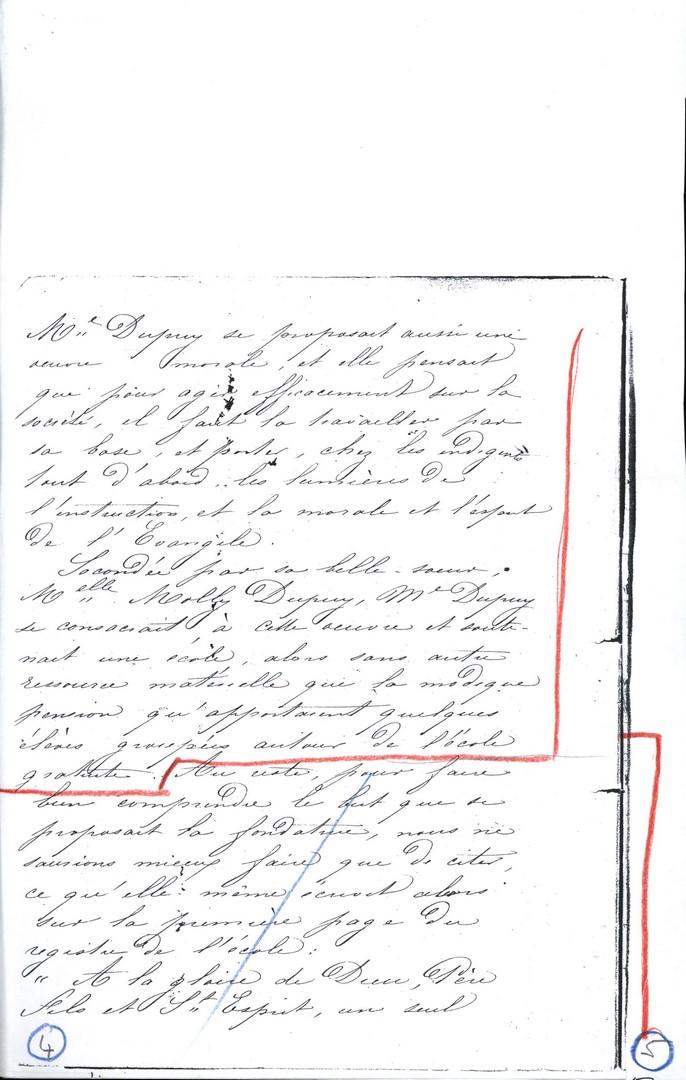 Me Dupuy se proposait aussi une
oeuvre morale, et elle pensait
que pour agir efficacement sur la
société, il faut la travailler par
sa base, et porter, chez les indigents
tout d'abord, les lumières de
l'instruction, et la morale et l'esprit
de l'Evangile.
Secondée par sa belle-soeur,
Melle Molly Dupuy, Me Dupuy
se consacrait à cette oeuvre et soute-
nait une école, alors sans autre
ressource matérielle que la modique
pension qu'apportaient quelques
élèves groupées autour de l'école
gratuite. Au reste, pour faire
bien comprendre le but que se
proposait la fondatrice, nous ne
saurions mieux faire que de citer,
ce qu'elle-même écrivit alors
sur la première page du
registre de l'école:
" A la gloire de Dieu, Père
Fils et St Esprit, un seul
4
5